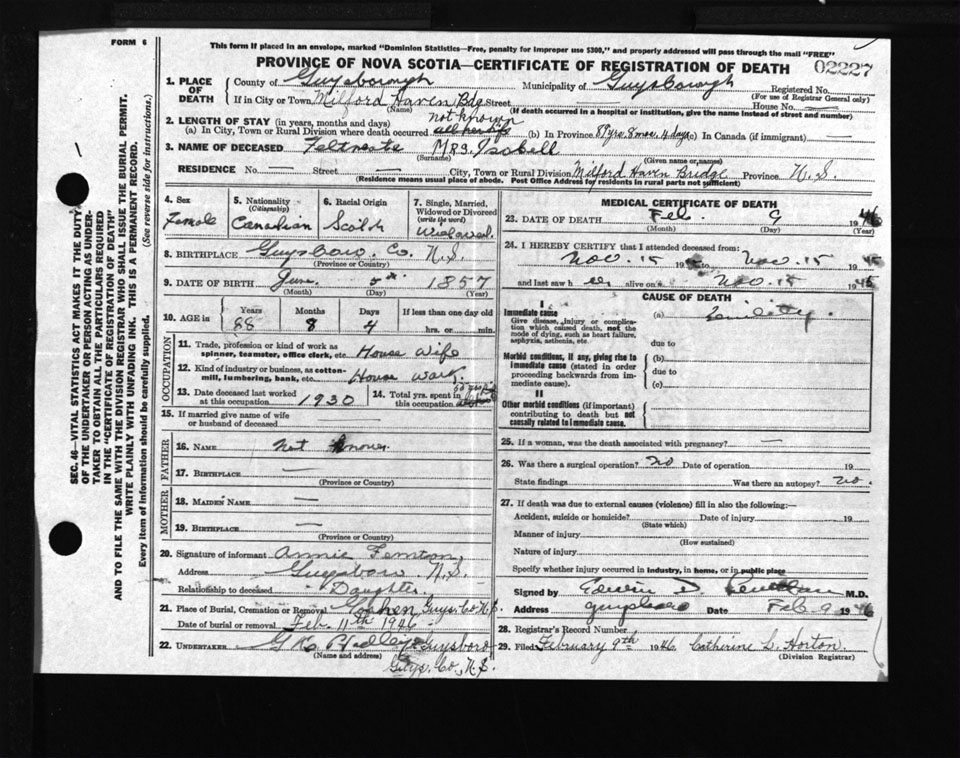 FORM 6
This form if placed in an envelope, marked "Dominion Statistics—Free, penalty for improper use $300," and properly addressed will pass through the mail "FREE"
PROVINCE OF NOVA SCOTIA—CERTIFICATE OF REGISTRATION OF DEATH
02227
SEC. 46—VITAL STATISTICS ACT MAKES IT THE DUTY
OF THE UNDERTAKER OR PERSON ACTING AS UNDER-
TAKER TO OBTAIN ALL THE PARTICULARS REQUIRED
IN THE "CERTIFICATE OF REGISTRATION OF DEATH"
AND TO FILE THE SAME WITH THE DIVISION REGISTRAR WHO SHALL ISSUE THE BURIAL PERMIT.
WRITE PLAINLY WITH UNFADING INK. THIS IS A PERMANENT RECORD.
Every item of information should be carefully supplied. (See reverse side for instructions.)
1. PLACE OF DEATH
County of Guysborough Municipality of Guysborough Registered No.
(For use of Registrar General only)
If in City or Town Milford Haven Bdg. Street House No.
(Name) (If death occurred in a hospital or institution, give the name instead of street and number)
2. LENGTH OF STAY (in years, months and days) not known
(a) In City, Town or Rural Division where death occurred all her life (b) In Province 88 yrs. 8 mos. 4 days (c) In Canada (if immigrant)
3. NAME OF DECEASED Mrs. Isobell
(Surname) (Given name or names)
RESIDENCE No. — Street — City, Town or Rural Division Milford Haven Bridge Province N.S.
(Residence means usual place of abode. Post Office Address for residents in rural parts not sufficient)
4. Sex
Female
5. Nationality
(Citizenship)
Canadian
6. Racial Origin
7. Single, Married, Widowed or Divorced
(write the word)
Widowed
8. BIRTHPLACE Guysboro. Co. N.S.
(Province or Country)
9. DATE OF BIRTH June 5 1857
(Month) (Day) (Year)
10. AGE in Years Months Days If less than one day old
88 8 4 hrs. or min.
OCCUPATION
11. Trade, profession or kind of work as
spinner, teamster, office clerk, etc. House Wife
12. Kind of industry or business, as cotton-
mill, lumbering, bank, etc. House work.
13. Date deceased last worked
at this occupation 1930
14. Total yrs. spent in
this occupation
15. If married give name of wife
or husband of deceased
FATHER
16. NAME not known
17. BIRTHPLACE —
(Province or Country)
MOTHER
18. MAIDEN NAME —
19. BIRTHPLACE —
(Province or Country)
20. Signature of informant Annie Femton
Address Guysboro N.S.
Relationship to deceased Daughter
21. Place of Burial, Cremation or Removal Goshen, Guys. Co. N.S.
Date of burial or removal Feb. 11th 1946
22. UNDERTAKER Guysboro
(Name and address)
Guys. Co., N.S.
MEDICAL CERTIFICATE OF DEATH
23. DATE OF DEATH Feb. 9 1946
(Month) (Day) (Year)
24. I HEREBY CERTIFY that I attended deceased from:
Nov. 15 19 to Nov. 15 1945
and last saw h er alive on Nov. 15 1945
CAUSE OF DEATH
I
Immediate cause
Give disease, injury or complica-
tion which caused death, not the
mode of dying, such as heart failure,
asphyxia, asthenia, etc.
(a) Senility.
due to
Morbid conditions, if any, giving rise to
immediate cause (stated in order
proceeding backwards from im-
mediate cause).
(b)
due to
(c)
II
Other morbid conditions (if important)
contributing to death but not
causally related to immediate cause.
25. If a woman, was the death associated with pregnancy? —
26. Was there a surgical operation? no Date of operation 19
State findings Was there an autopsy? no.
27. If death was due to external causes (violence) fill in also the following:—
Accident, suicide or homicide? Date of injury 19
(State which)
Manner of injury
(How sustained)
Nature of injury
Specify whether injury occurred in industry, in home, or in public place
Signed by Edwin D. M.D.
Address Guysboro Date Feb. 9 1946
28. Registrar's Record Number
29. Filed February 9th 1946 Catherine L. Horton.
(Division Registrar)